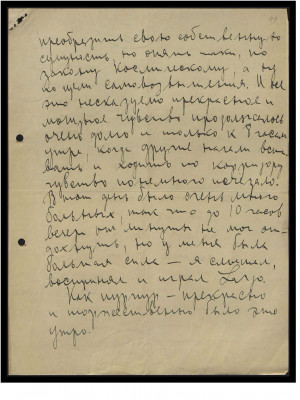 преобразил свою собственную
сущность, но опять таки, по
закону Космическому, а не
по цели самовозвышения. И все
это несказуемо прекрасное и
мощное чувство продолжалось
очень долго и только к 8 часам
утра, когда другие начали вста-
вать и ходить по коридору
чувство понемного исчезало.
В этот день было очень много
больных, так что до 10 часов
вечера ни минуты не мог от-
дохнуть, но у меня была
большая сила – я слышал,
воспринял и играл Largo.
Как пурпур – прекрасно
и торжественно было это
утро.